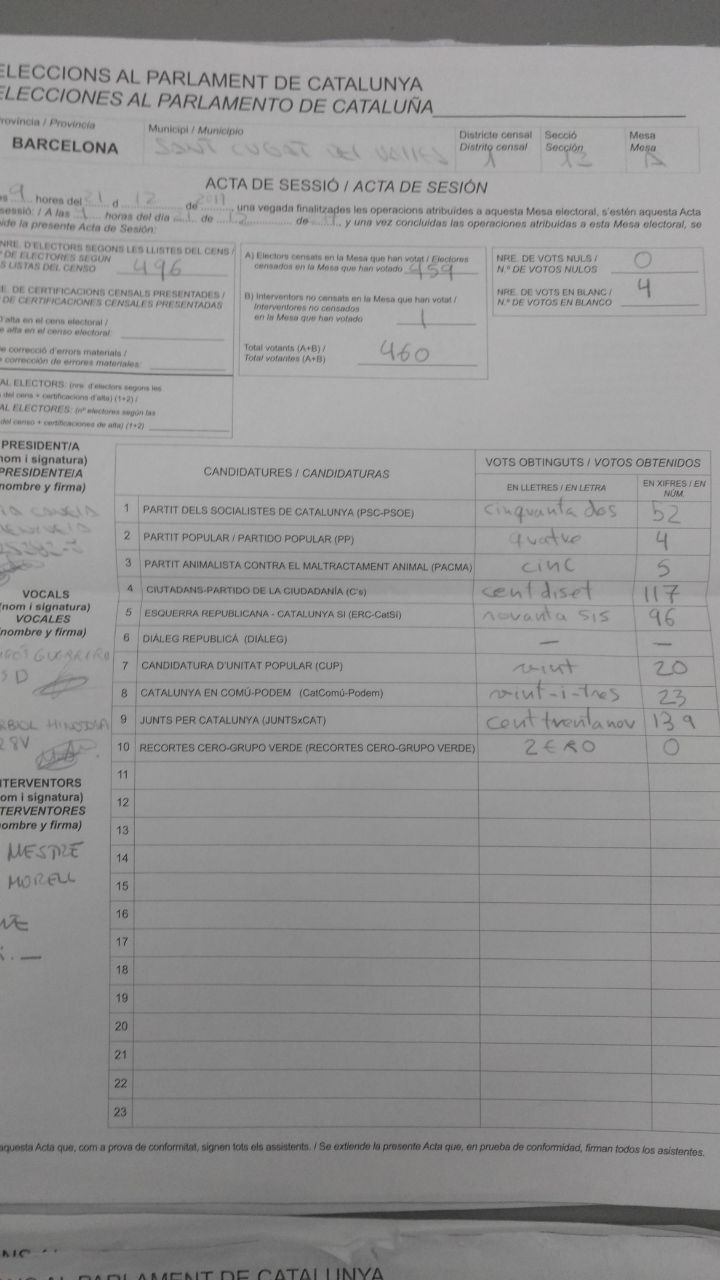 ELECCIONS AL PARLAMENT DE CATALUNYA
ELECCIONES AL PARLAMENTO DE CATALUÑA
rovíncia / Provincia
BARCELONA
Municipi / Municipio
SANT CUGAT DEL VALLES
Districte censal
Distrito censal
1
Secció
Sección
12
Mesa
Mesa
ACTA DE SESSIÓ / ACTA DE SESIÓN
es 9 hores del 21 d 12 de 2017, una vegada finalitzades les operacions atribuïdes a aquesta Mesa electoral, s'estén aquesta Acta
sessió: / A las horas del día de 12 de y una vez concluidas las operaciones atribuidas a esta Mesa electoral, se
ide la presente Acta de Sesión:
NRE. D'ELECTORS SEGONS LES LLISTES DEL CENS /
º DE ELECTORES SEGÚN
S LISTAS DEL CENSO 496
E. DE CERTIFICACIONS CENSALS PRESENTADES /
DE CERTIFICACIONES CENSALES PRESENTADAS
D'alta en el cens electoral /
e alta en el censo electoral:
e correcció d'errors materials /
e corrección de errores materiales:
AL ELECTORS: (nre. d'electors segons les
del cens + certificacions d'alta) (1+2) /
AL ELECTORES: (nº electores según las
del censo + certificaciones de alta) (1+2)
A) Electors censats en la Mesa que han votat / Electores
censados en la Mesa que han votado 459
B) Interventors no censats en la Mesa que han votat /
Interventores no censados
en la Mesa que han votado 1
Total votants (A+B) /
Total votantes (A+B) 460
NRE. DE VOTS NULS /
N.º DE VOTOS NULOS 0
NRE. DE VOTS EN BLANC /
N.º DE VOTOS EN BLANCO 4
PRESIDENT/A
nom i signatura)
PRESIDENTE/A
nombre y firma)
VOCALS
(nom i signatura)
VOCALES
nombre y firma)
GUERRERO
HINOJOSA
28V
NTERVENTORS
om i signatura)
TERVENTORES
ombre y firma)
MESTRE
MORELL
CANDIDATURES / CANDIDATURAS
VOTS OBTINGUTS / VOTOS OBTENIDOS
EN LLETRES / EN LETRA
EN XIFRES / EN
NÚM.
1 PARTIT DELS SOCIALISTES DE CATALUNYA (PSC-PSOE) cinquanta dos 52
2 PARTIT POPULAR / PARTIDO POPULAR (PP) quatre 4
3 PARTIT ANIMALISTA CONTRA EL MALTRACTAMENT ANIMAL (PACMA) cinc 5
4 CIUTADANS-PARTIDO DE LA CIUDADANÍA (C's) cent diset 117
5 ESQUERRA REPUBLICANA - CATALUNYA SÍ (ERC-CatSí) novanta sis 96
6 DIÀLEG REPUBLICÀ (DIÀLEG) — —
7 CANDIDATURA D'UNITAT POPULAR (CUP) vint 20
8 CATALUNYA EN COMÚ-PODEM (CatComú-Podem) vint-i-tres 23
9 JUNTS PER CATALUNYA (JUNTSxCAT) cent trenta nou 139
10 RECORTES CERO-GRUPO VERDE (RECORTES CERO-GRUPO VERDE) ZERO 0
11
12
13
14
15
16
17
18
19
20
21
22
23
aquesta Acta que, com a prova de conformitat, signen tots els assistents. / Se extiende la presente Acta que, en prueba de conformidad, firman todos los asistentes.
PARLAMENT DE CATALUNYA